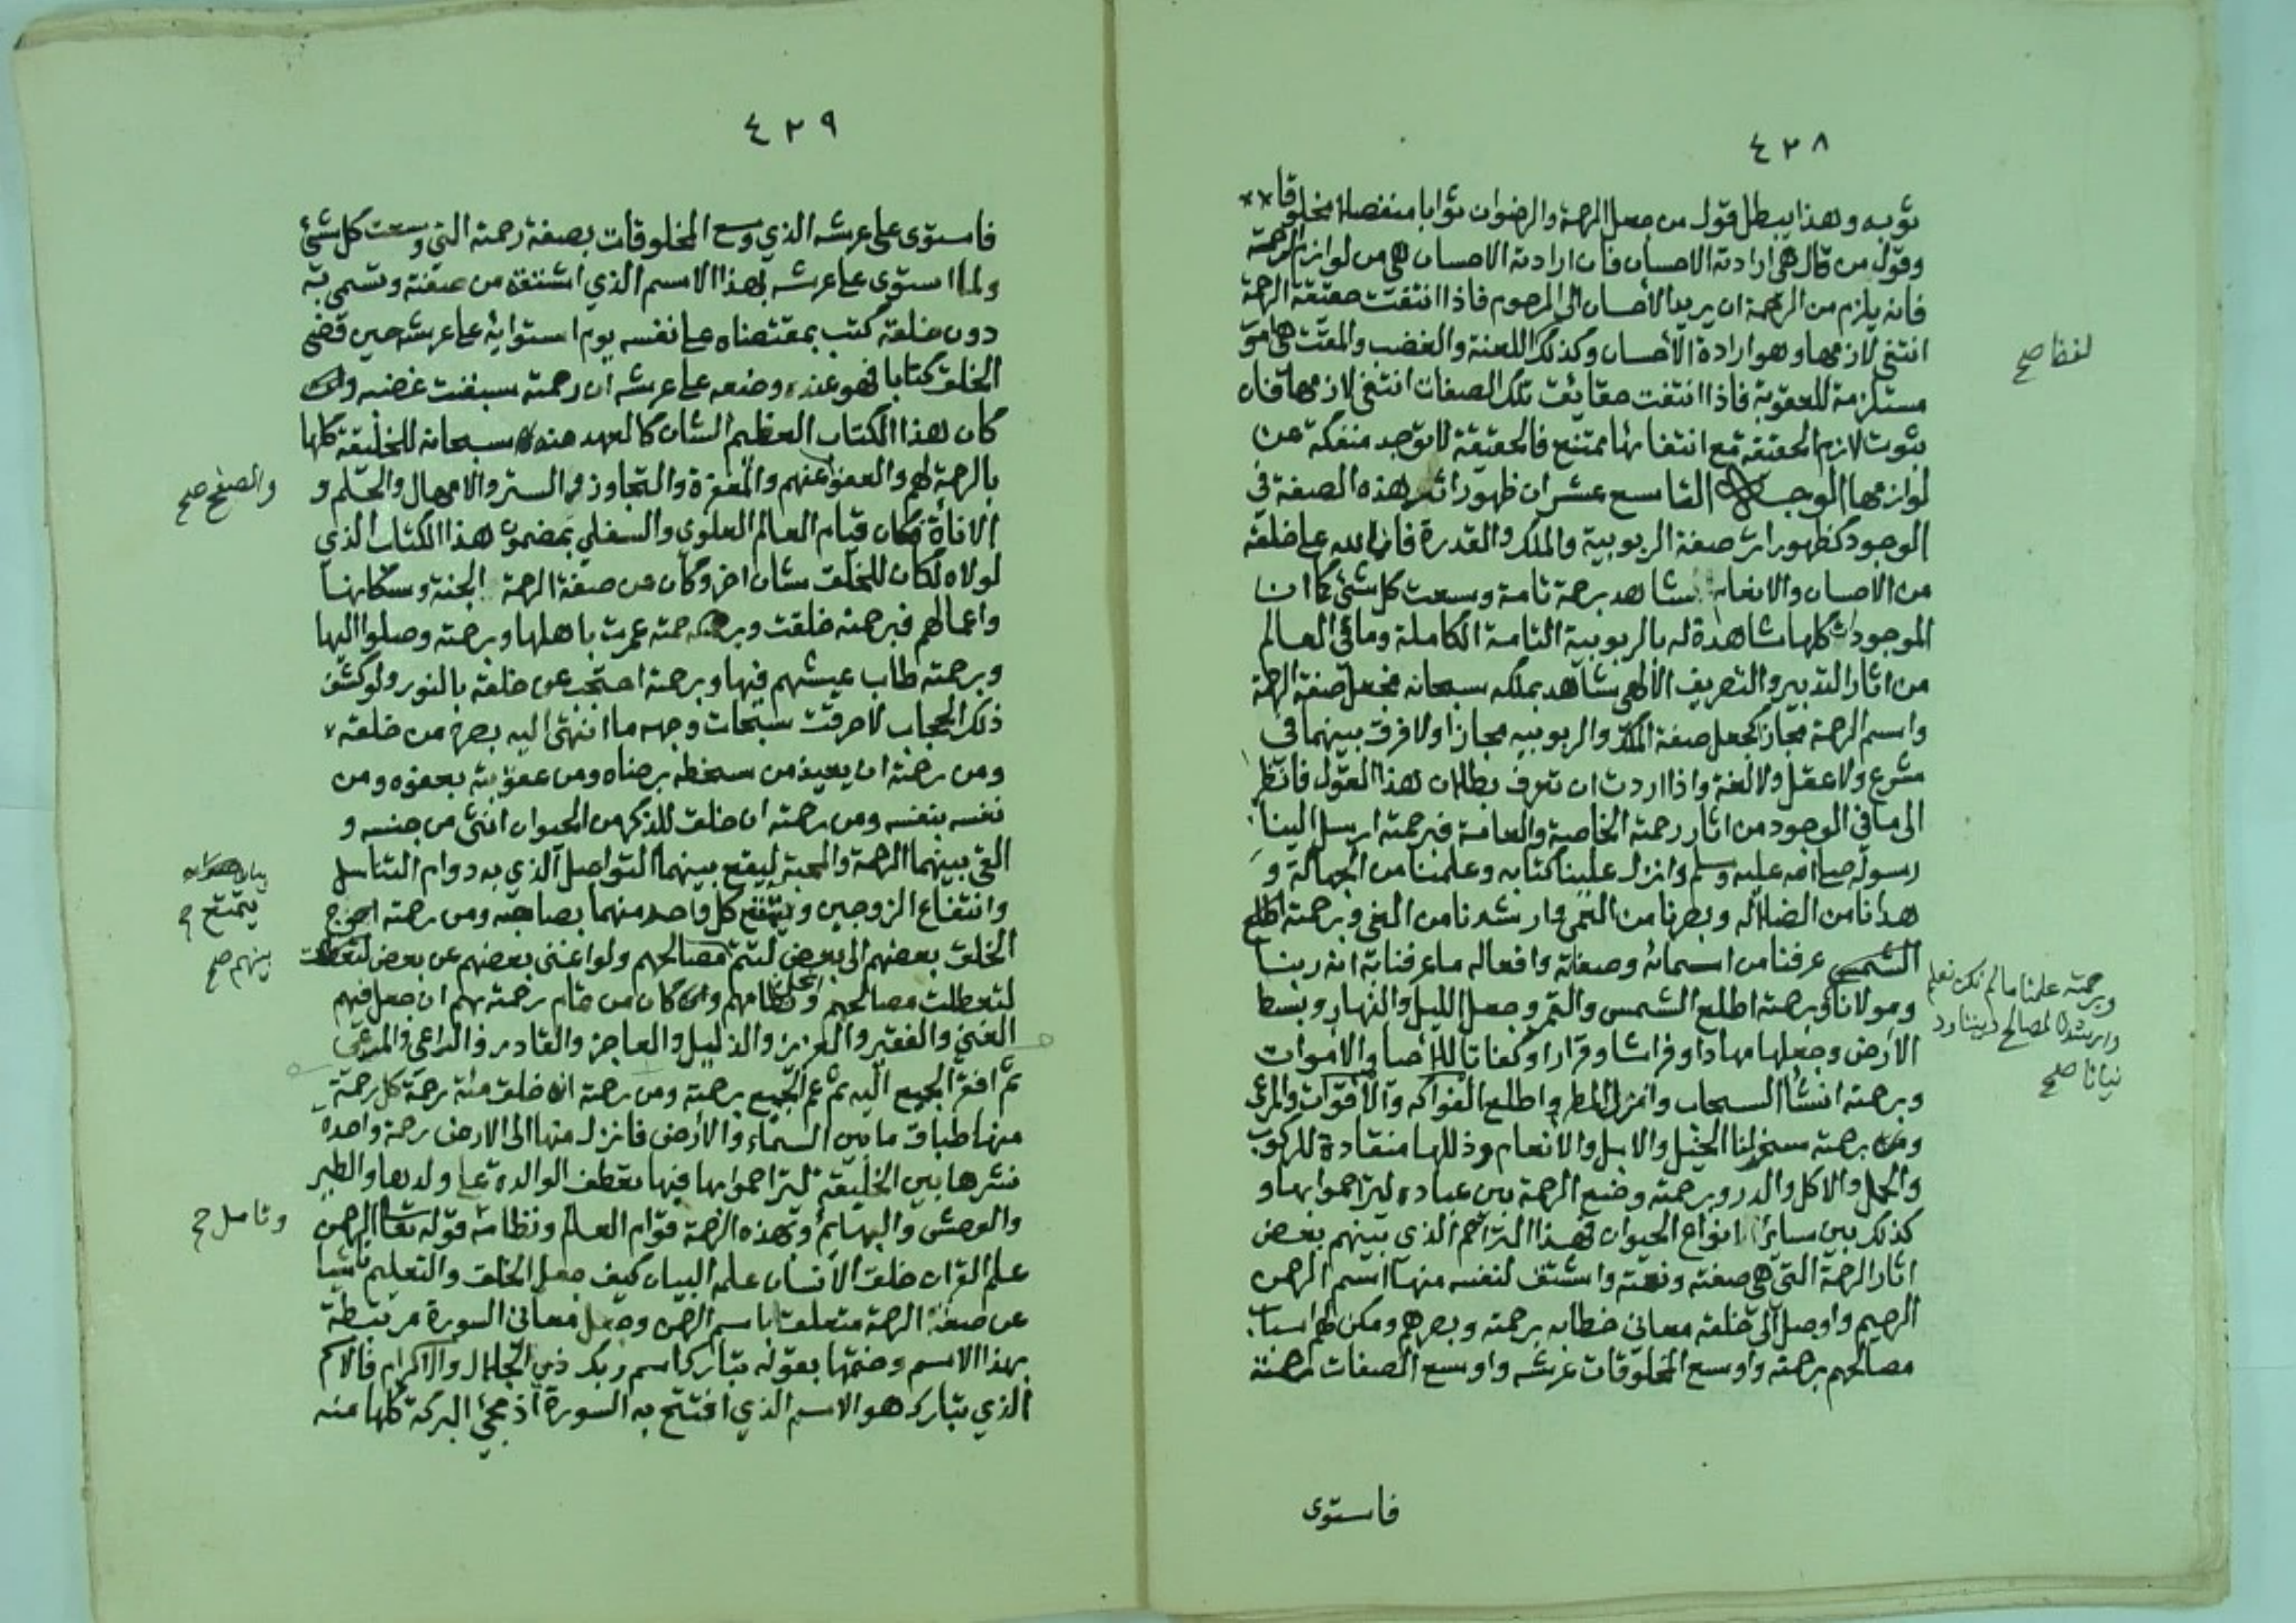 ٤٢٨
ثوبه وهذا يبطل قول من جعل الرحمة والرضوان ثوابا منفصلا مخلوقا
وقول من قال هي ارادته الاحسان فان ارادته الاحسان هي من لوازم الرحمة
فانه يلزم من الرحمة ان يريد الاحسان الى المرحوم فاذا انتفت حقيقة الرحمة
انتفى لازمها وهو ارادة الاحسان وكذلك اللعنة والغضب والمقت هي امور
مستلزمة للعقوبة فاذا انتفت حقايق تلك الصفات انتفى لازمها فان
ثبوت لازم الحقيقة مع انتفائها ممتنع فالحقيقة لا توجد منفكة عن
لوازمها الوجه التاسع عشر ان ظهور اثر هذه الصفة في
الوجود كظهور اثر صفة الربوبية والملك والقدرة فان لله على خلقه
من الاحسان والانعام شاهد برحمة تامة وسعت كل شئ كما ان
الموجودات كلها شاهدة له بالربوبية التامة الكاملة وما في العالم
من اثار التدبير والتصريف الالهي شاهد بملكه سبحانه فجعل صفة الرحمة
واسم الرحمة مجازا كجعل صفة الملك والربوبيه مجازا ولا فرق بينهما في
شرع ولا عقل ولا لغة واذا اردت ان تعرف بطلان هذا القول فانظر
الى ما في الوجود من اثار رحمته الخاصة والعامة فبرحمته ارسل الينا
رسوله صلى الله عليه وسلم وانزل علينا كتابه وعلمنا من الجهالة و
هدانا من الضلاله وبصرنا من العمى وارشدنا من الغي وبرحمته اطلع
الشمس عرفنا من اسمائه وصفاته وافعاله ما عرفنا به انه ربنا
ومولانا وبرحمته اطلع الشمس والقمر وجعل الليل والنهار وبسط
الارض وجعلها مهادا وفراشا وقرارا وكفاتا للاحيا والاموات
وبرحمته انشأ السحاب وانزل المطر واطلع الفواكه والاقوات والمرعى
ومن رحمته سخر لنا الخيل والابل والانعام وذللها منقادة للركوب
والحمل والاكل والدر وبرحمته وضع الرحمة بين عباده ليتراحموا بها و
كذلك بين ساير انواع الحيوان فهذا التراحم الذي بينهم بعض
اثار الرحمة التي هي صفته ونعمته واشتق لنفسه منها اسم الرحمن
الرحيم واوصل الى خلقه معاني خطابه برحمته وبصرهم ومكن لهم اسباب
مصالحهم برحمته واوسع المخلوقات عرشه واوسع الصفات رحمته
فاستوى
لفظا صح
وبرحمته علمنا ما لم نكن نعلم
وارشدنا لمصالح ديننا ود
نيانا صح
٤٢٩
فاستوى على عرشه الذي وسع المخلوقات بصفة رحمته التي وسعت كل شئ
ولما استوى على عرشه بهذا الاسم الذي اشتقه من صفته وتسمى به
دون خلقه كتب بمقتضاه على نفسه يوم استوايه على عرشه حين قضى
الخلق كتابا فهو عنده وضعه على عرشه ان رحمته سبقت غضبه
كان هذا الكتاب العظيم الشان كالعهد منه سبحانه للخليقة كلها
بالرحمة لهم والعفو عنهم والمغفرة والتجاوز والستر والامهال والحلم و
الاناة فكان قيام العالم العلوي والسفلي بمضمون هذا الكتاب الذي
لولاه لكان للخلق شان اخر وكان من صفة الرحمة الجنة وسكانها
واعمالهم فبرحمته خلقت وبرحمته عمرت باهلها وبرحمته وصلوا اليها
وبرحمته طاب عيشهم فيها وبرحمته احتجب عن خلقه بالنور ولو كشف
ذلك الحجاب لاحرقت سبحات وجهه ما انتهى اليه بصره من خلقه
ومن رحمته ان يعيذ من سخطه برضاه ومن عقوبته بعفوه ومن
نفسه بنفسه ومن رحمته ان خلق للذكر من الحيوان انثى من جنسه و
القى بينهما الرحمة والمحبة ليقع بينهما التواصل الذي به دوام التناسل
وانتفاع الزوجين ويتمتع كل واحد منهما بصاحبه ومن رحمته احوج
الخلق بعضهم الى بعض لتتم مصالحهم ولو اغنى بعضهم عن بعض لتعطلت
لتعطلت مصالحهم وانحل نظامهم وكان من تمام رحمته بهم ان جعل فيهم
الغني والفقير والعزيز والذليل والعاجز والقادر والراعي والمرعي
ثم افقر الجميع اليه ثم عم الجميع برحمته ومن رحمته انه خلق مئة رحمة كل رحمة
منها طباق ما بين السماء والارض فانزل منها الى الارض رحمة واحدة
نشرها بين الخليقة ليتراحموا بها فبها تعطف الوالدة على ولدها والطير
والوحش والبهايم وبهذه الرحمة قوام العالم ونظامه قوله تعالى الرحمن
علم القران خلق الانسان علمه البيان كيف جعل الخلق والتعليم ناشيا
عن صفة الرحمة متعلقا باسم الرحمن وجعل معاني السورة مرتبطة
بهذا الاسم وختمها بقوله تبارك اسم ربك ذي الجلال والاكرام فالاسم
الذي تبارك هو الاسم الذي افتتح به السورة اذ مجئ البركة كلها منه
والصفح صح
يتمتع
بينهم صح
وتامل صح